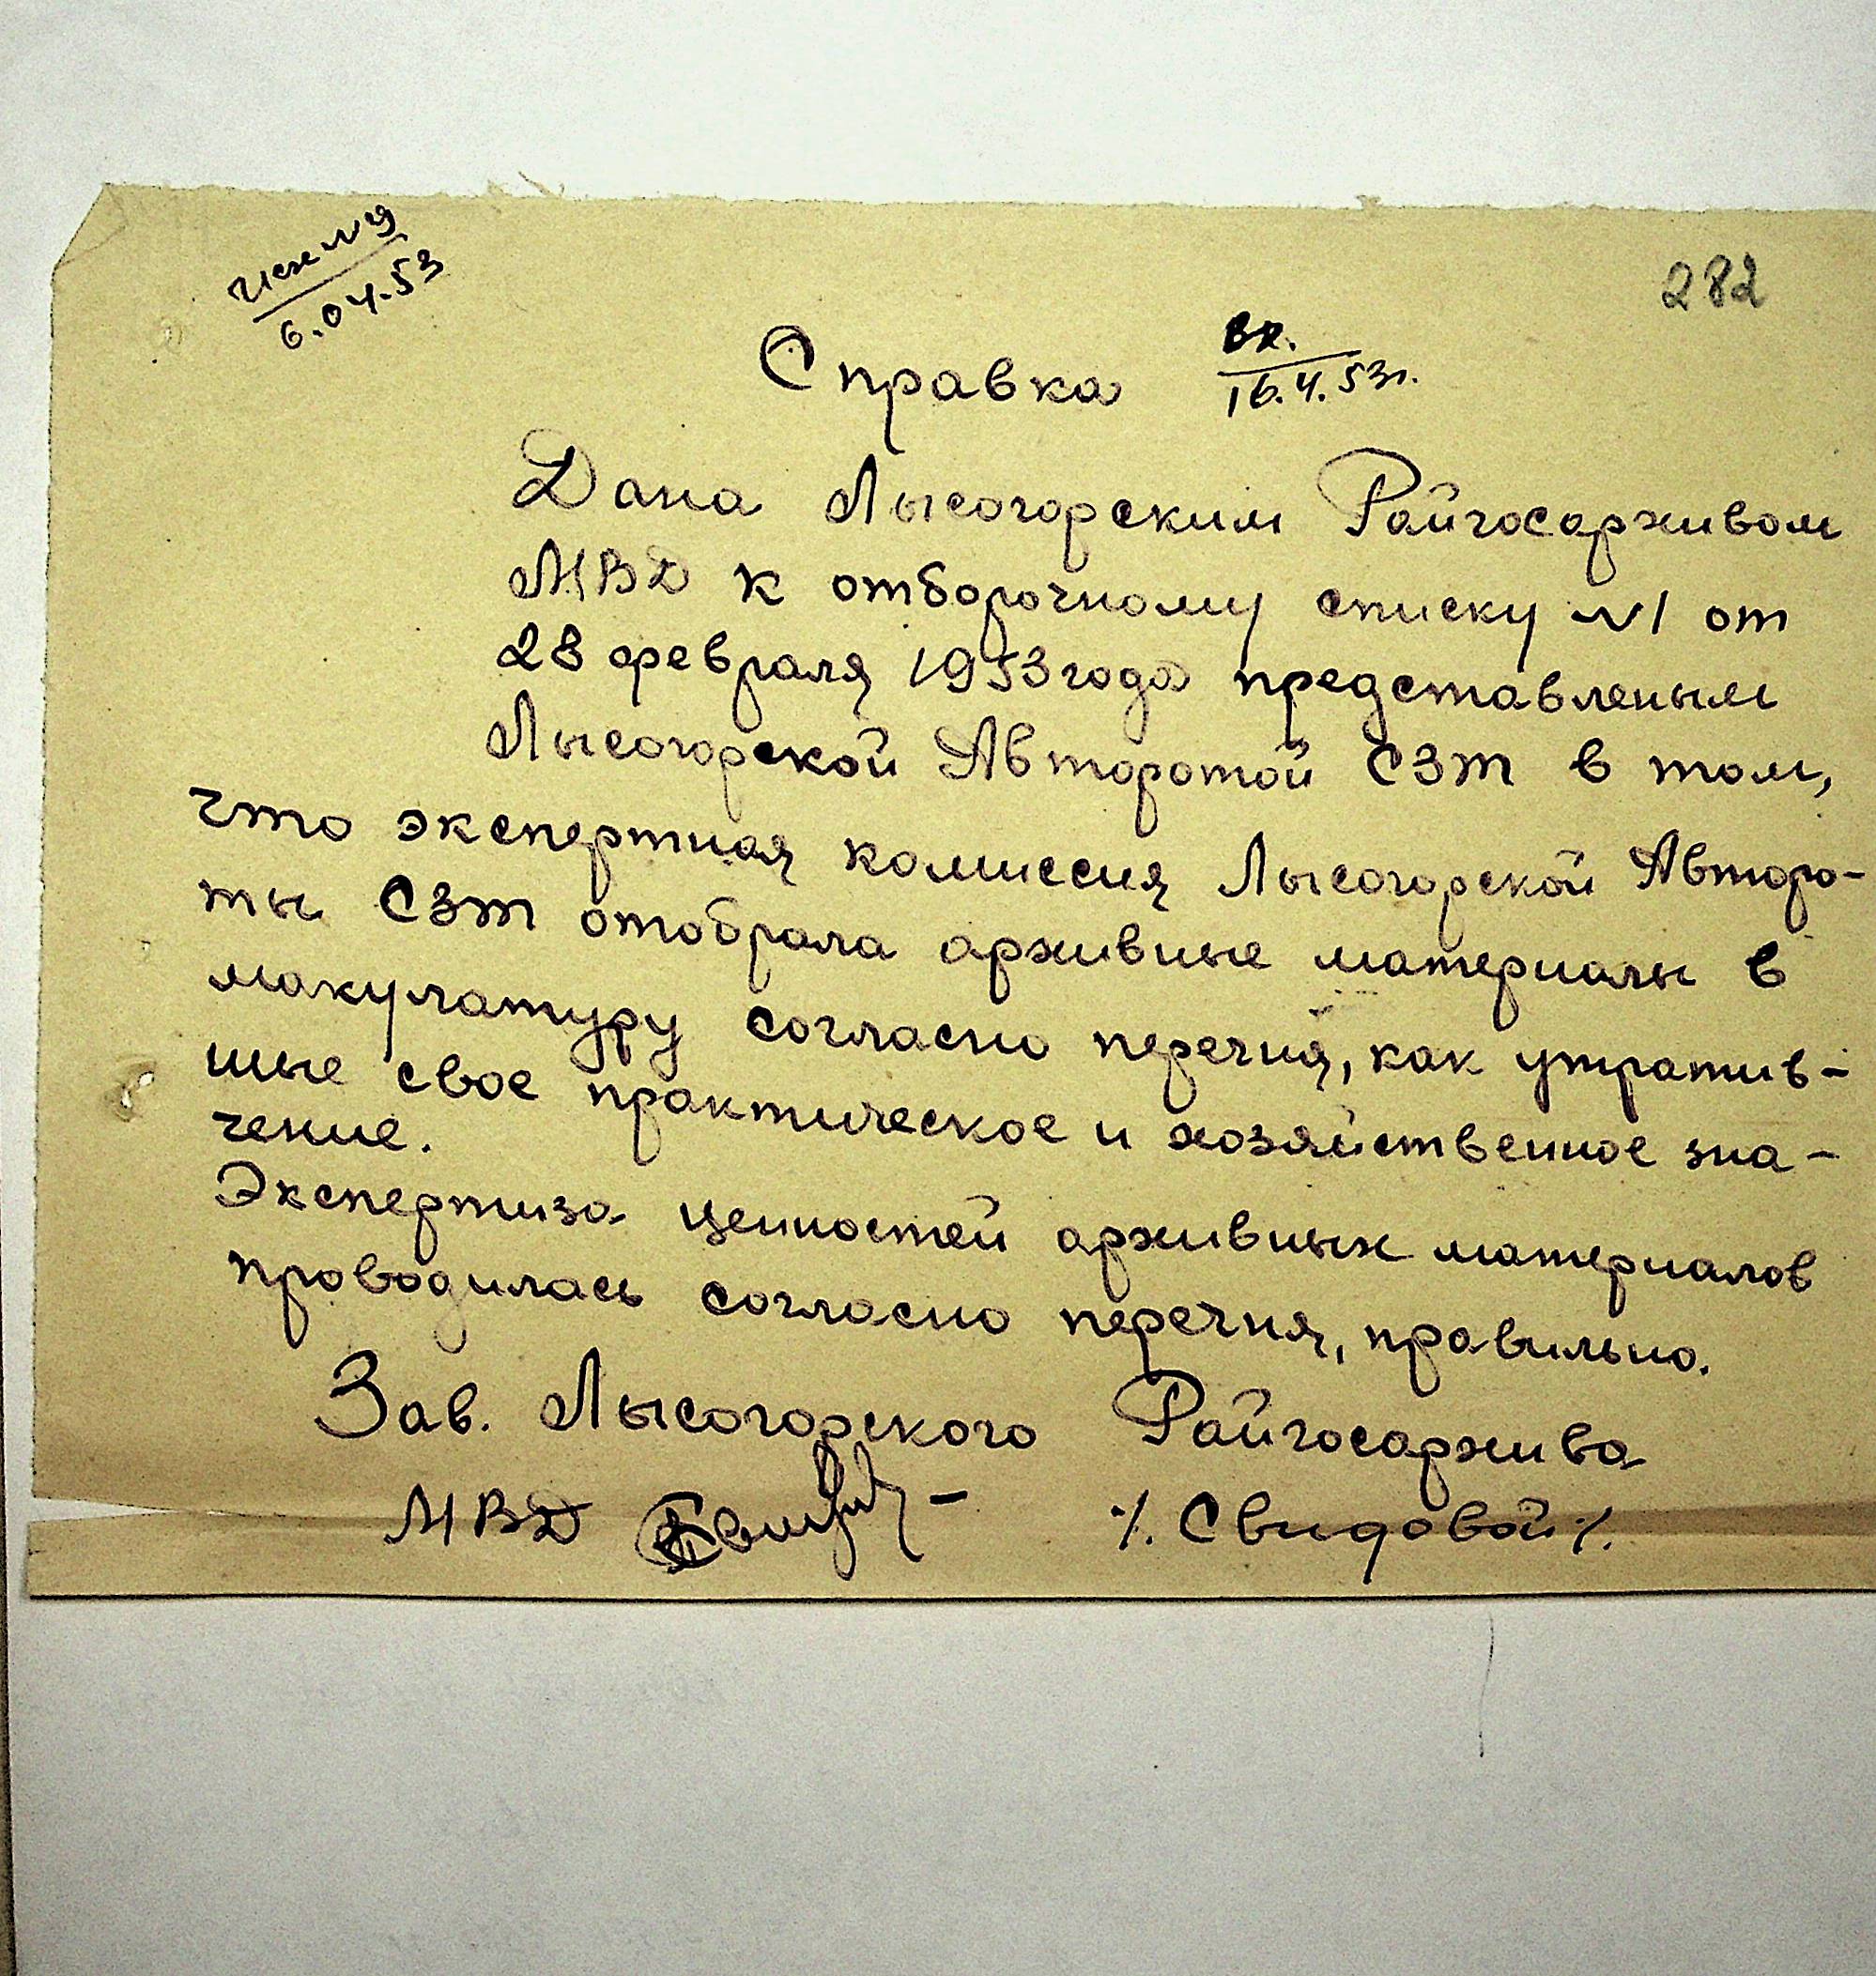 Исх №9
6.04.53
282
Справка
вх.
16.4.53г.
Дана Лысогорским Райгосархивом
МВД к отборочному списку №1 от
28 февраля 1953 года представленым
Лысогорской Авторотой СЗТ в том,
что экспертная комиссия Лысогорской Авторо-
ты СЗТ отобрала архивные материалы в
макулатуру согласно перечня, как утратив-
шые свое практическое и хозяйственное зна-
чение.
Экспертиза ценностей архивных материалов
проводилась согласно перечня, правильно.
Зав. Лысогорского Райгосархива
МВД – ·/. Свидовой ·/.